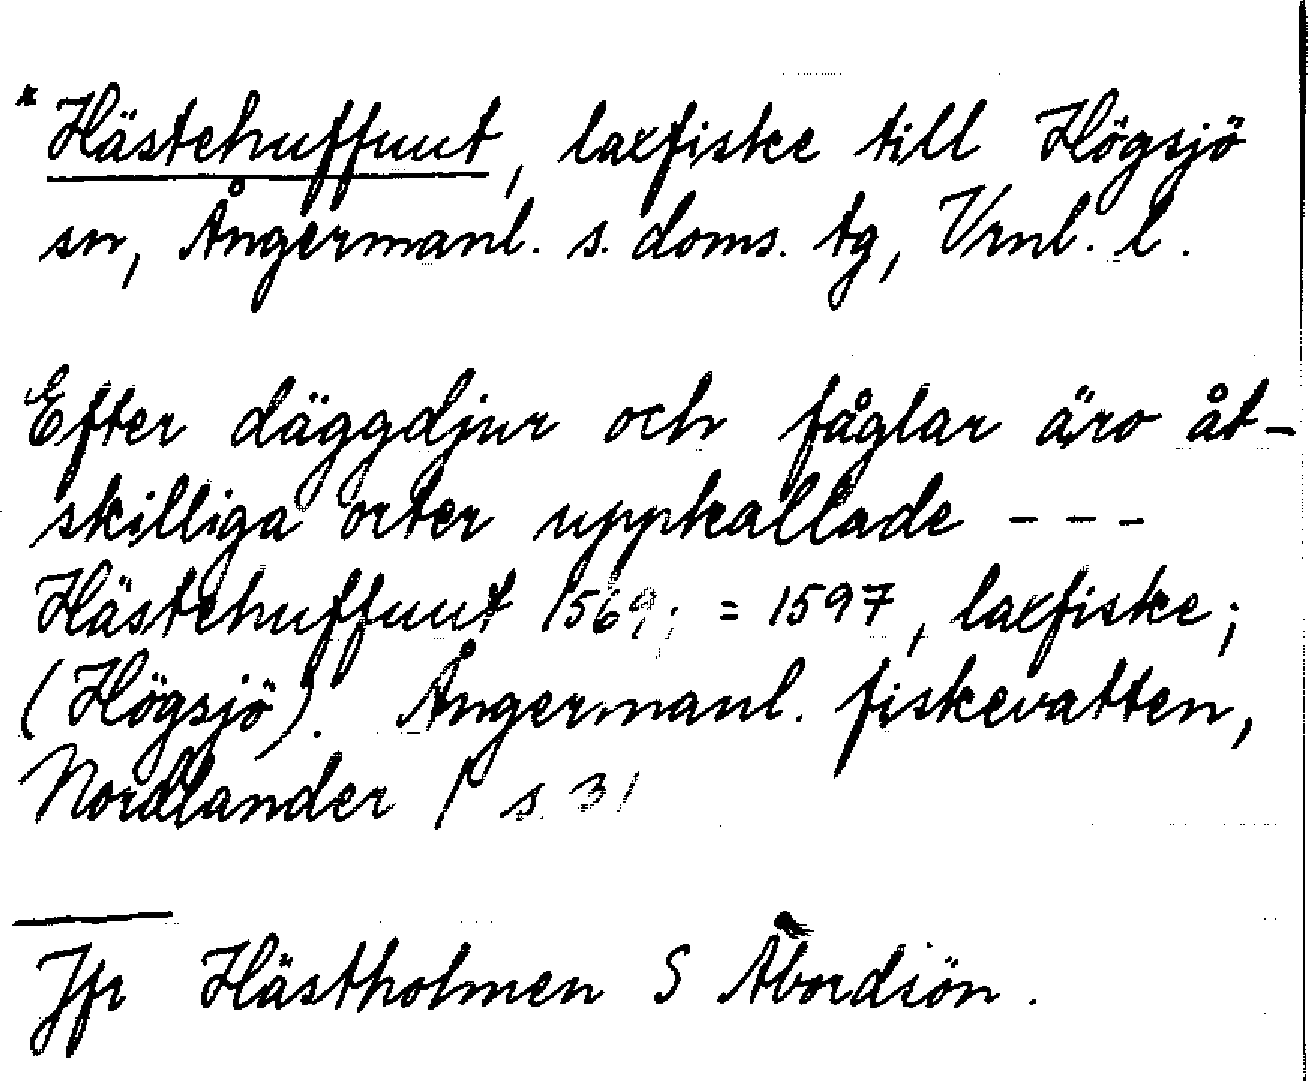 * Hästehuffuut, laxfiske till Högsjö
sn, Ångermanl. s. doms. tg, Vrnl. l.
Efter däggdjur och fåglar äro åt-
skilliga orter uppkallade - - -
Hästehuffuut 1569; = 1597, laxfiske;
(Högsjö). Ångermanl. fiskevatten,
Nordlander / s. 31
Jfr Hästholmen S Åbordsön.